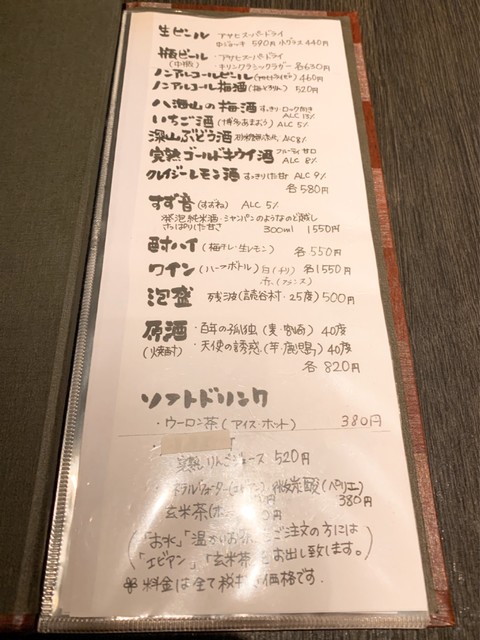 生ビール アサヒスーパードライ
中ジョッキ 590円 小グラス 440円
瓶ビール ・アサヒスーパードライ
(中瓶) ・キリンクラシックラガー 各630円
ノンアルコールビール(アサヒドライゼロ) 460円
ノンアルコール梅酒 520円
八海山の梅酒 すっきり・ロック向き
ALC 13%
いちご酒 (博多あまおう) ALC 5%
深山ぶどう酒 ALC 8%
完熟ゴールドキウイ酒 フルーティ 甘口
ALC 8%
クレイジーレモン酒 すっきりした甘さ ALC 9%
各580円
すず音 (すずね) ALC 5%
発泡純米酒・シャンパンのようなのど越し
さっぱりした甘さ 300ml 1550円
酎ハイ (梅干し・生レモン) 各550円
ワイン (ハーフボトル) 白(チリ) 各1550円
赤(フランス)
泡盛 残波(読谷村・25度) 500円
原酒 ・百年の孤独 (麦・宮崎) 40度
(焼酎) ・天使の誘惑 (芋・鹿児島) 40度
各820円
ソフトドリンク
・ウーロン茶 (アイス・ホット) 380円
りんごジュース 520円
ネラルウォーター(エビアン) 微炭酸(ペリエ)
380円
玄米茶(ホ
「お水」「温
ご注文の方には
「エビアン」「玄米茶」をお出し致します。
※料金は全て税 価格です.